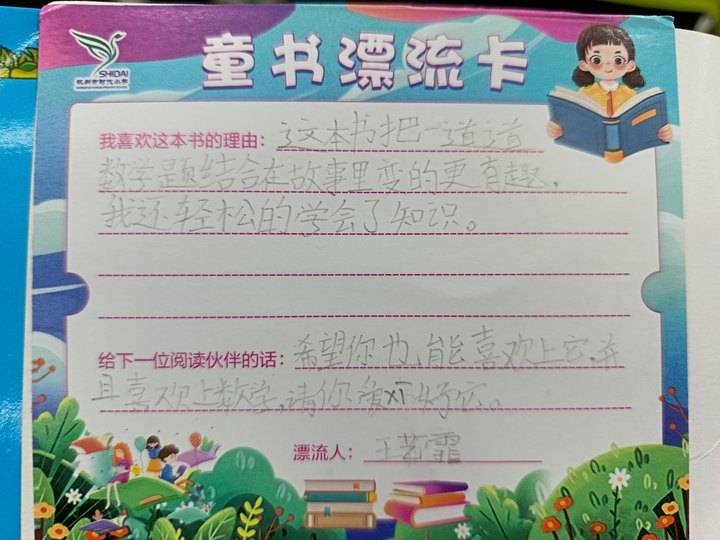 SHIDAI
杭州市时代小学
童书漂流卡
我喜欢这本书的理由：这本书把一道道
数学题结合在故事里变的更有趣，
我还轻松的学会了知识。
给下一位阅读伙伴的话：希望你也能喜欢上它，并
且喜欢上数学，请你爱护好它。
漂流人：王艺霏